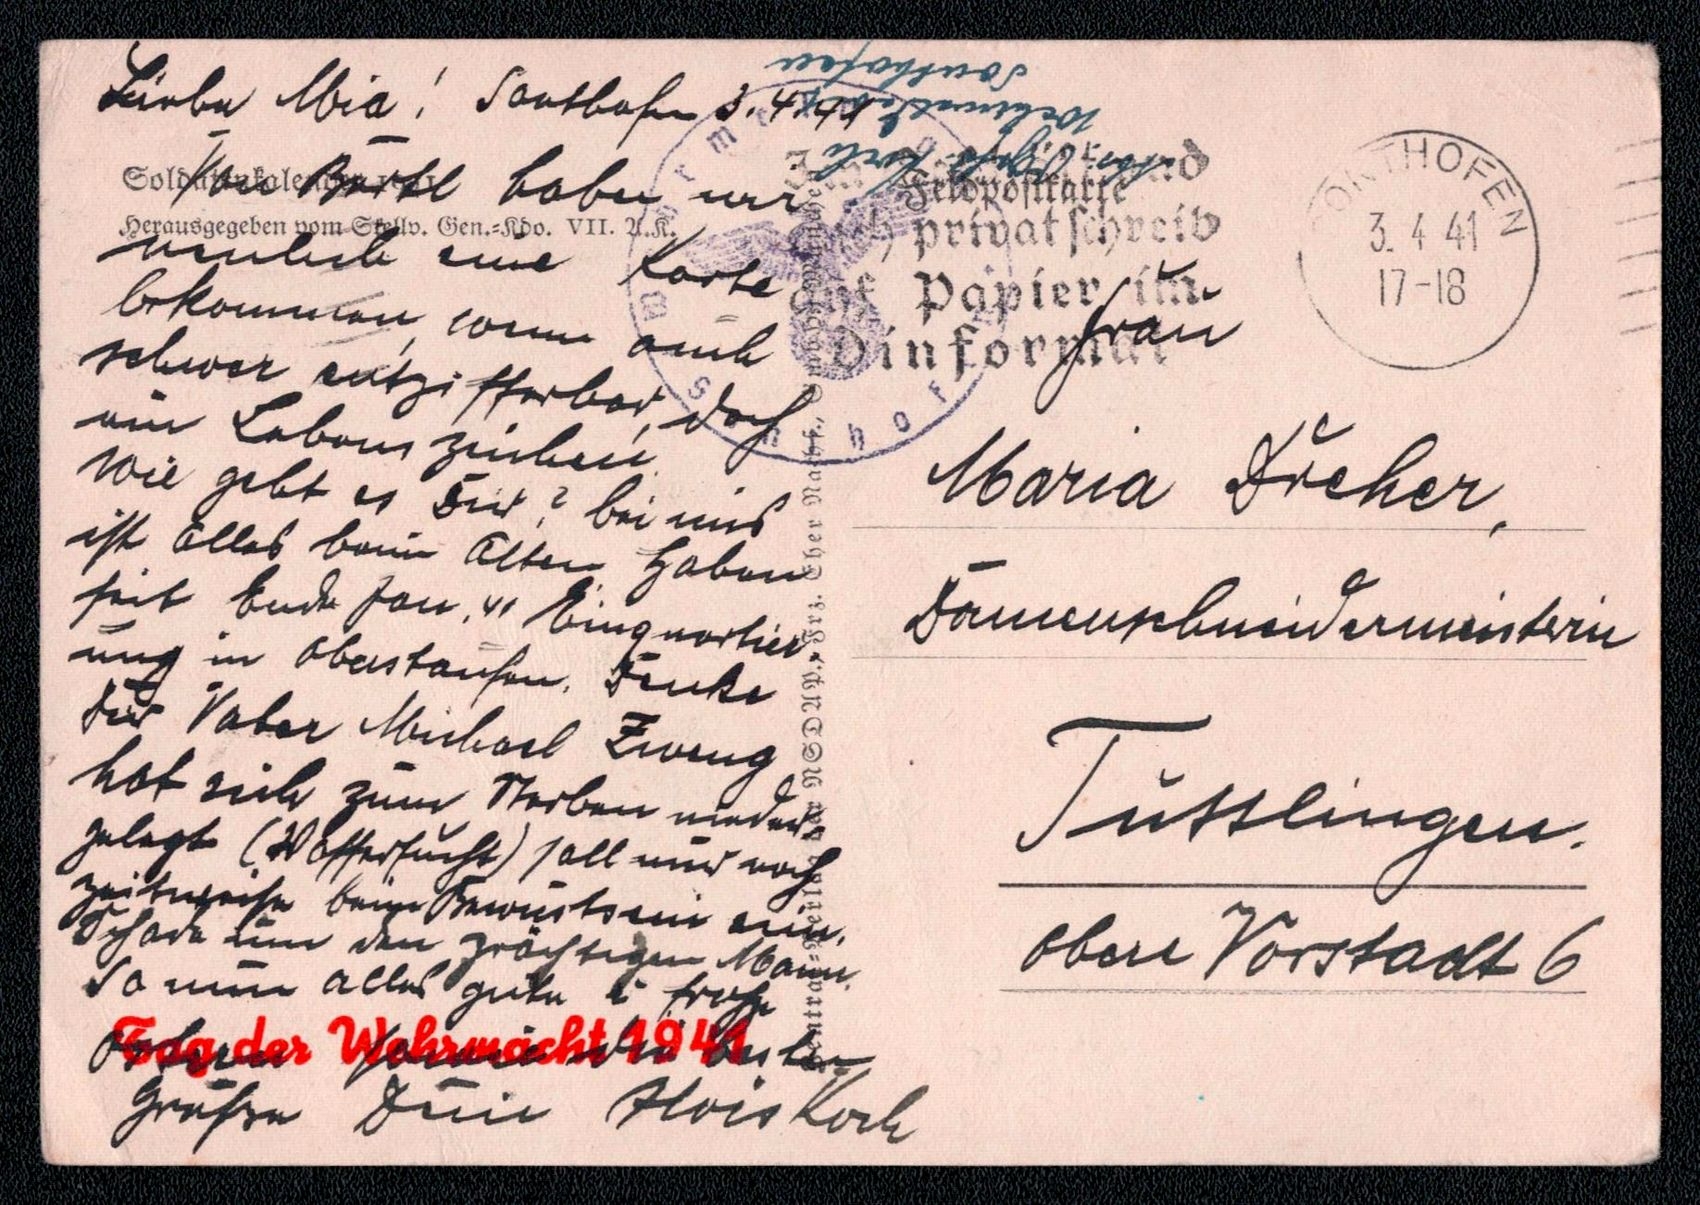 Liebe Mia! Sonthofen 3.4.41
Von Bartl haben wir
neulich eine Karte
bekommen, wenn auch
schwer entzifferbar, doch
ein Lebenszeichen.
Wie geht es Dir? bei uns
ist alles beim Alten. Haben
seit Ende Jan. 41 Einquartier-
ung in Oberstaufen. Denke
Dir Vater Michael Zweng
hat sich zum Sterben nieder-
gelegt (Waffersucht) soll nur noch
zeitweise beim Bewustsein sein.
Schade um den prächtigen Mann.
So nun alles gute u frohe
Ostern sowie die besten
Grüße Dein Alois Koch
Soldatenkalender
Herausgegeben vom Stellv. Gen.=Kdo. VII. A.K.
Tag der Wehrmacht 1941
Zentralverlag der NSDAP., Frz. Eher Nachf.,
Sonthofen
Feldpostkarte
privatschreib
Papier im
Dinformat
SONTHOFEN
3.4.41
17-18
Frau
Maria Dreher,
Damenschneidermeisterin
Tuttlingen.
obere Vorstadt 6